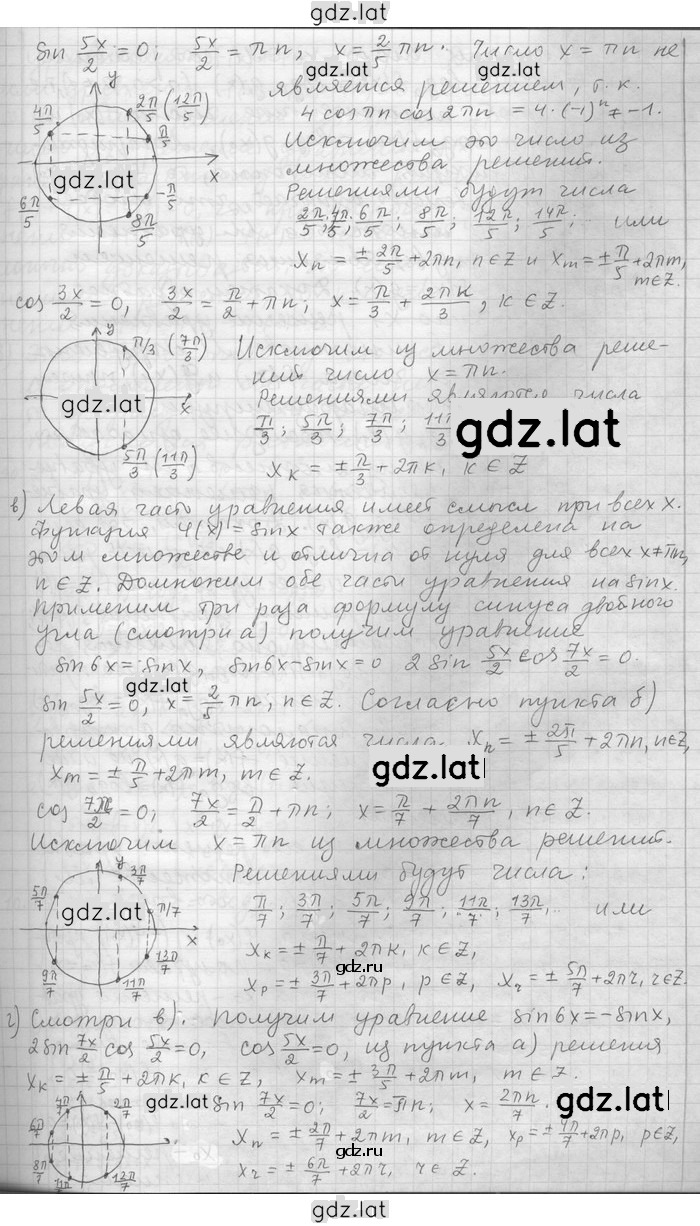 gdz.lat
sin 5x/2 = 0; 5x/2 = πn, x = 2/5 πn. Число x = πn не
является решением, т.к.
gdz.lat
4 cosπn cos2πn = 4·(-1)ⁿ ≠ -1.
Исключим это число из
множества решений.
Решениями будут числа
2π/5; 4π/5; 6π/5; 8π/5; 12π/5; 14π/5; или
xₙ = ± 2π/5 + 2πn, n∈Z и xₘ = ± π/5 + 2πm,
m∈Z.
y
4π/5 2π/5 (12π/5)
π/5
gdz.lat
x
6π/5 -π/5
8π/5
cos 3x/2 = 0, 3x/2 = π/2 + πn; x = π/3 + 2πк/3, к∈Z.
y
π/3 (7π/3)
gdz.lat
x
5π/3 (11π/3)
Исключим из множества реше-
ний число x = πn.
Решениями являются числа
π/3; 5π/3; 7π/3; 11π/3
gdz.lat
xₖ = ± π/3 + 2πк, к∈Z
в) Левая часть уравнения имеет смысл при всех x.
Функция φ(x) = sinx также определена на
этом множестве и отлична от нуля для всех x≠πn,
n∈Z. Домножим обе части уравнения на sinx.
Применим три раза формулу синуса двойного
угла (смотри а) получим уравнение
sin6x = sinx, sin6x-sinx = 0 2 sin 5x/2 cos 7x/2 = 0.
gdz.lat
sin 5x/2 = 0, x = 2/5 πn, n∈Z. Согласно пункта б)
решениями являются числа xₙ = ± 2π/5 + 2πn, n∈Z,
xₘ = ± π/5 + 2πm, m∈Z.
gdz.lat
cos 7x/2 = 0; 7x/2 = π/2 + πn; x = π/7 + 2πn/7, n∈Z.
Исключим x = πn из множества решений.
y
3π/7
5π/7
π/7
gdz.lat
x
9π/7 13π/7
11π/7
Решениями будут числа:
π/7; 3π/7; 5π/7; 9π/7; 11π/7; 13π/7,.. или
xₖ = ± π/7 + 2πк, к∈Z,
gdz.lat
xₚ = ± 3π/7 + 2πp, p∈Z, xᵣ = ± 5π/7 + 2πr, r∈Z.
г) Смотри в). Получим уравнение sin6x = -sinx,
2sin 7x/2 cos 5x/2 = 0, cos 5x/2 = 0, из пункта а) решения
xₖ = ± π/5 + 2πк, к∈Z, xₘ = ± 3π/5 + 2πm, m∈Z.
gdz.lat
sin 7x/2 = 0; 7x/2 = πn; x = 2πn/7.
gdz.lat
xₙ = ± 2π/7 + 2πm, m∈Z, xₚ = ± 4π/7 + 2πp, p∈Z,
xᵣ = ± 6π/7 + 2πr, r∈Z.
4π/7 2π/7
6π/7
8π/7
11π/7 12π/7
gdz.lat